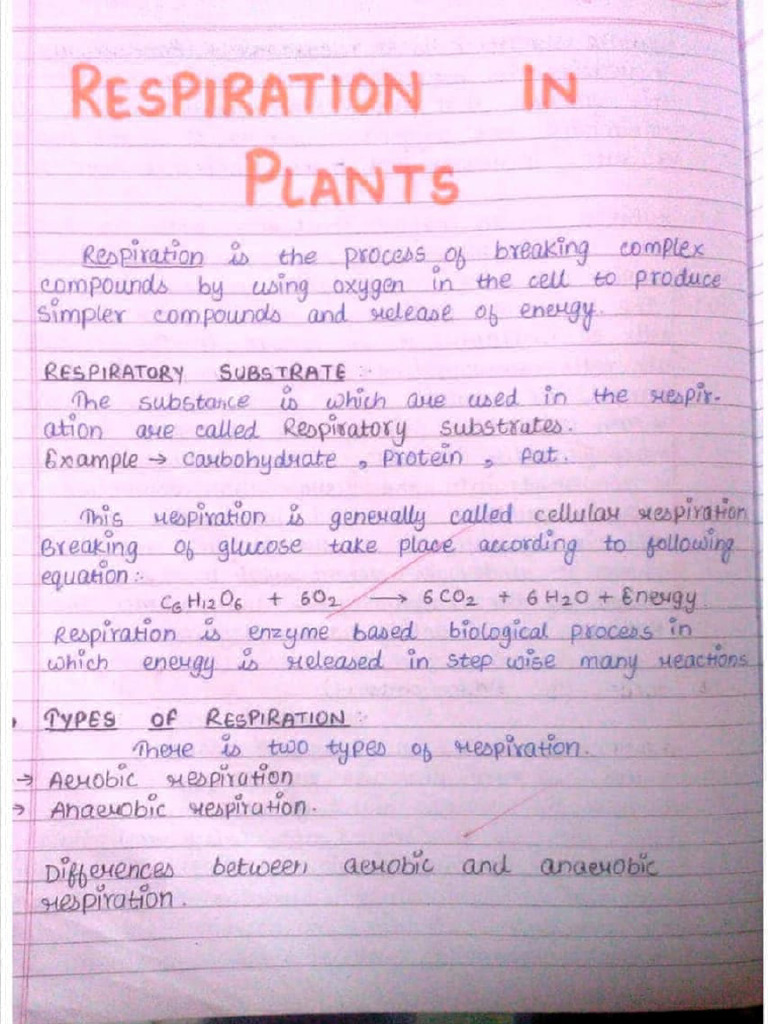 RESPIRATION IN
PLANTS
Respiration is the process of breaking complex
compounds by using oxygen in the cell to produce
simpler compounds and release of energy.
RESPIRATORY SUBSTRATE :-
The substance is which are used in the respir-
ation are called Respiratory substrates.
Example → Carbohydrate , Protein , Fat.
This respiration is generally called cellular respiration
Breaking of glucose take place according to following
equation:-
C6H12O6 + 6O2 → 6CO2 + 6H2O + Energy
Respiration is enzyme based biological process in
which energy is released in step wise many reactions
TYPES OF RESPIRATION :-
There is two types of respiration.
→ Aerobic respiration
→ Anaerobic respiration.
Differences between aerobic and anaerobic
respiration.